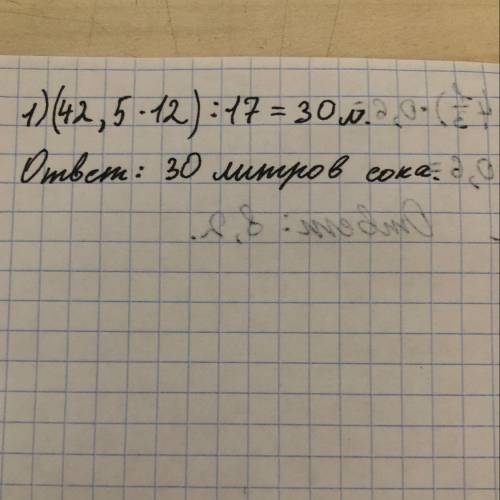 1) (42,5 · 12) : 17 = 30 л.
Ответ: 30 литров сока.
Ответ: 8,2.